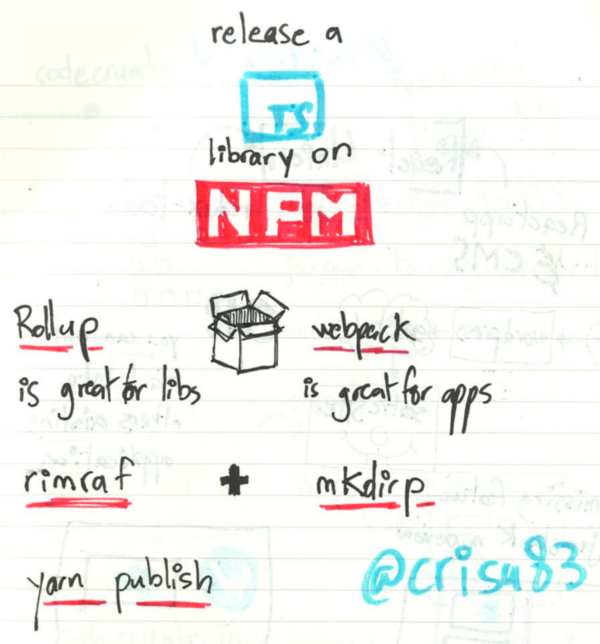 release a
TS
library on
NPM
Rollup
is great for libs
webpack
is great for apps
rimraf + mkdirp
yarn publish
@crisu83